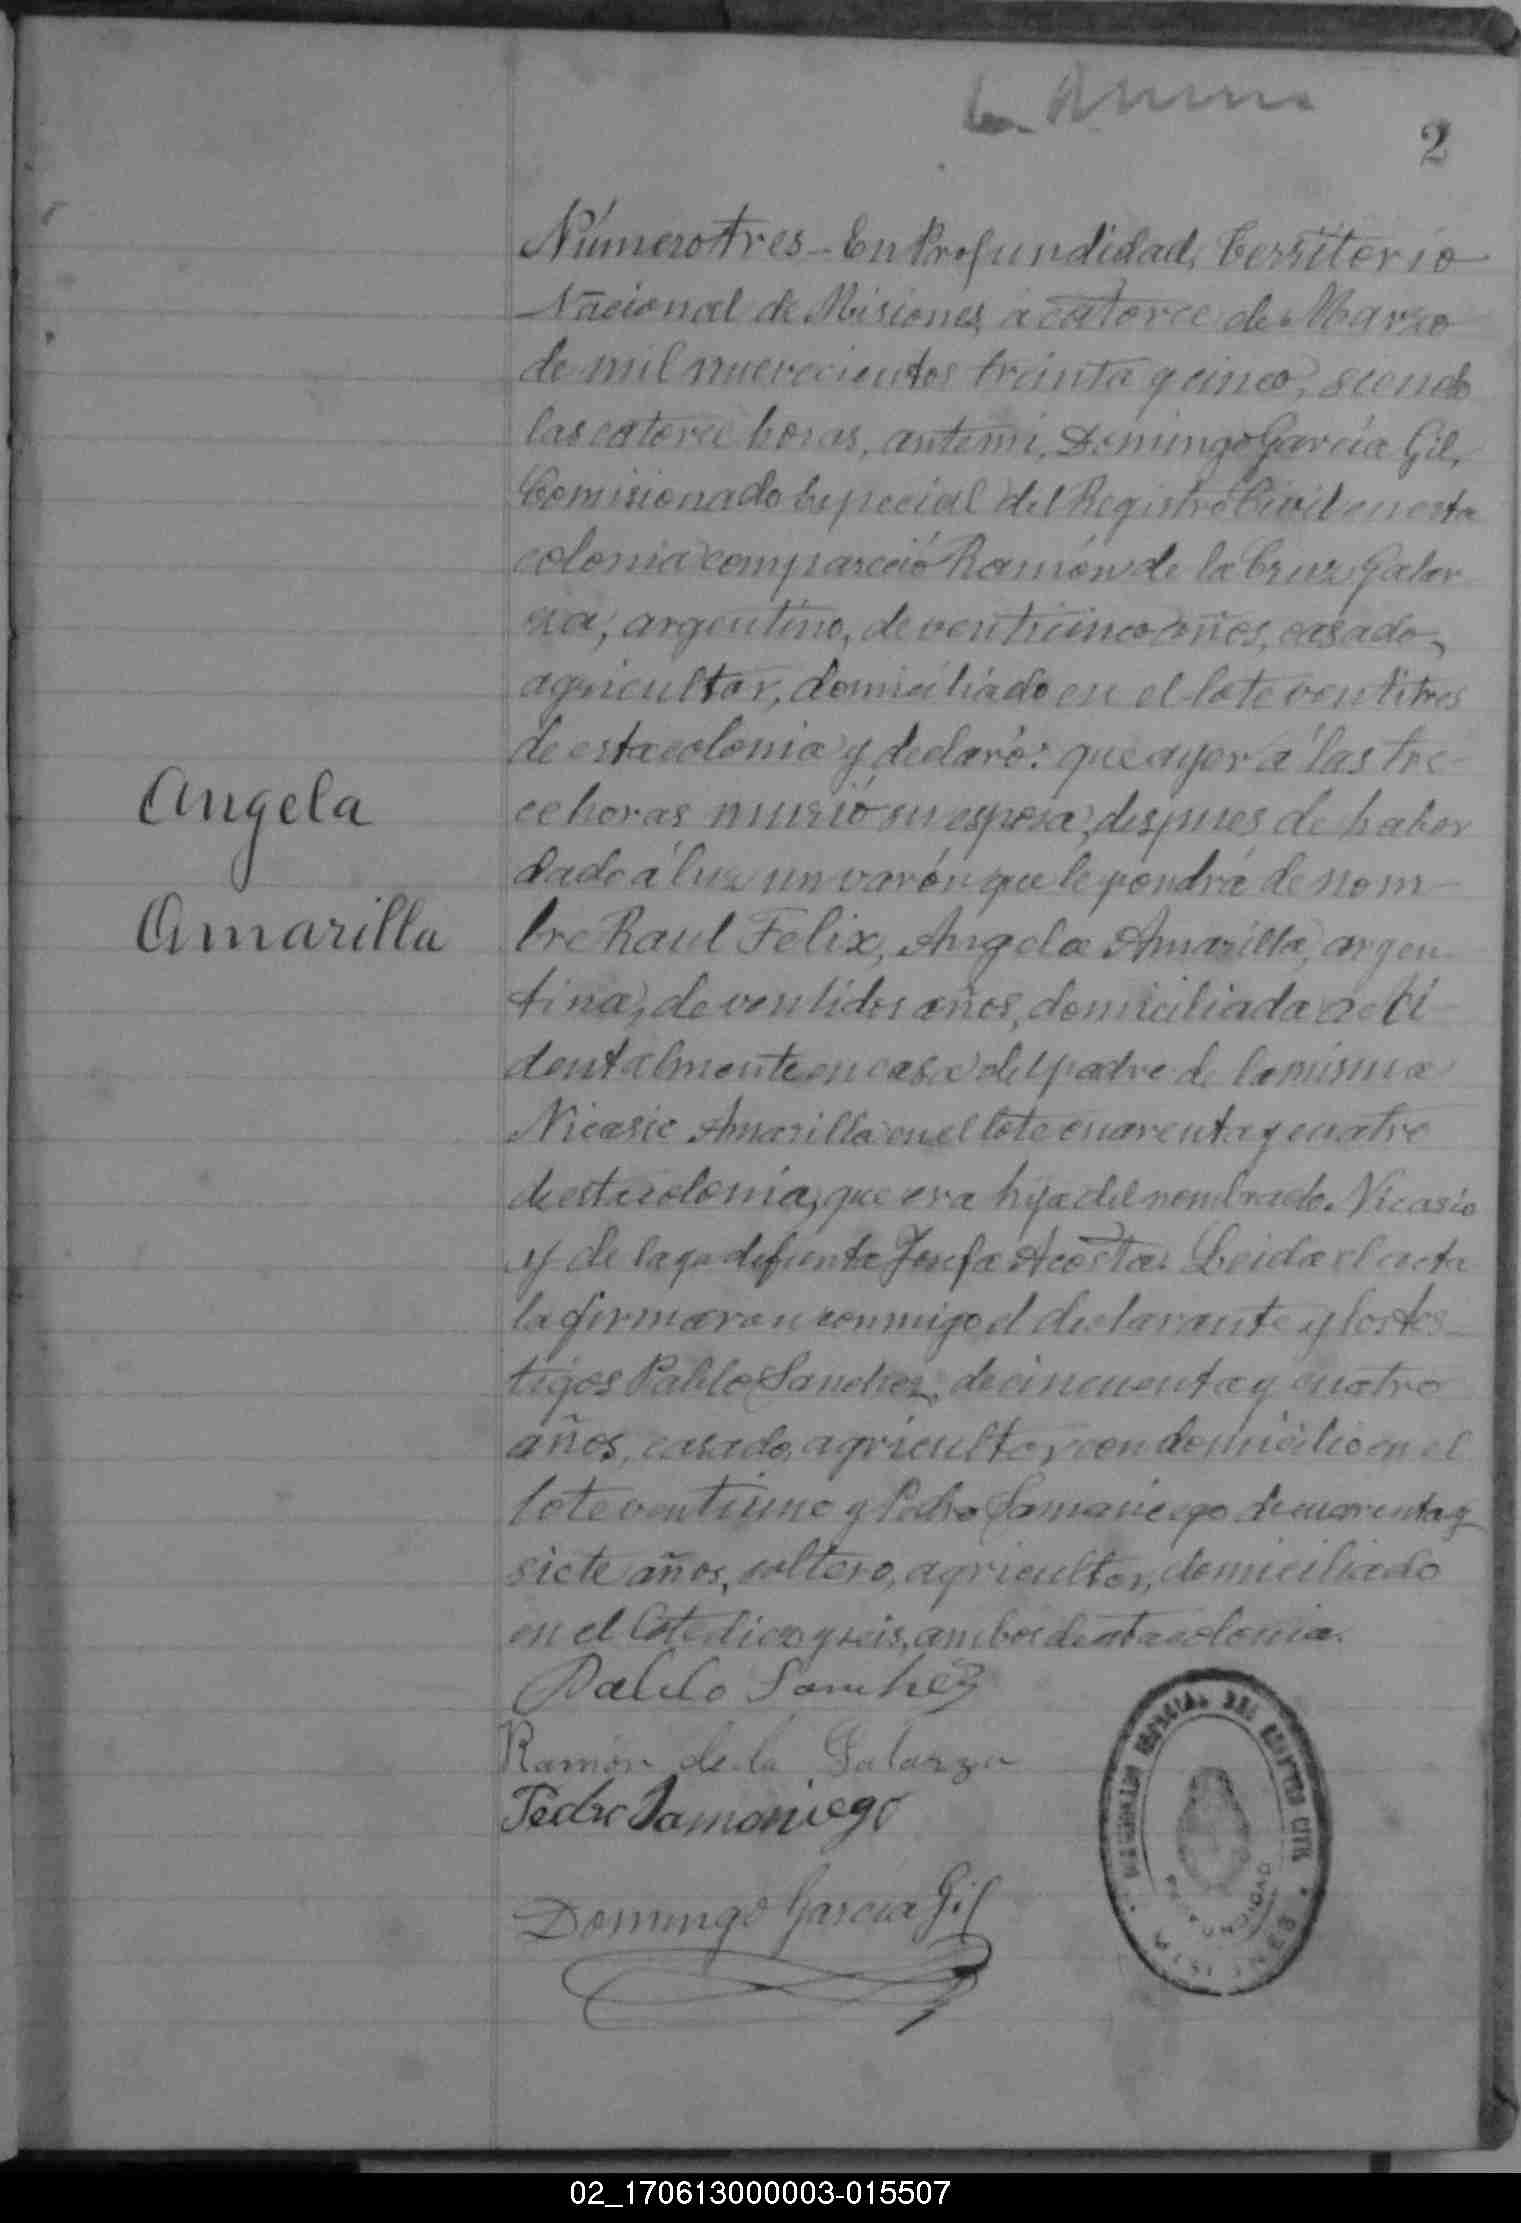 2
Número tres - En Profundidad, Territorio
Nacional de Misiones, á catorce de Marzo
de mil nuevecientos treinta y cinco, siendo
las catorce horas, ante mi, Domingo García Gil,
Comisionado Especial del Registro Civil en esta
colonia compareció Ramón de la Cruz Galar-
za, argentino, de venticinco años, casado,
agricultor, domiciliado en el lote ventitres
de esta colonia y declaró: que ayer á las tre-
ce horas murió su esposa, despues de haber
dado á luz un varón que le pondrá de nom-
bre Raul Felix, Angela Amarilla, argen-
tina, de ventidos años, domiciliada acci-
dentalmente en casa del padre de la misma
Nicasio Amarilla en el lote cuarenta y cuatro
de esta colonia, que era hija del nombrado Nicasio
y de la ya difunta Josefa Acosta. Leida el acta
la firmaron conmigo el declarante y los tes-
tigos Pablo Sanchez, de cincuenta y cuatro
años, casado, agricultor con domicilio en el
lote ventiuno y Pedro Samaniego de cuarenta y
siete años, soltero, agricultor, domiciliado
en el lote diez y seis, ambos de esta colonia.
Angela
Amarilla
Pablo Sanchez
Ramón de la Galarza
Pedro Samaniego
Domingo García Gil
COMISIONADO ESPECIAL DEL REGISTRO CIVIL
PROFUNDIDAD
MISIONES
02_170613000003-015507